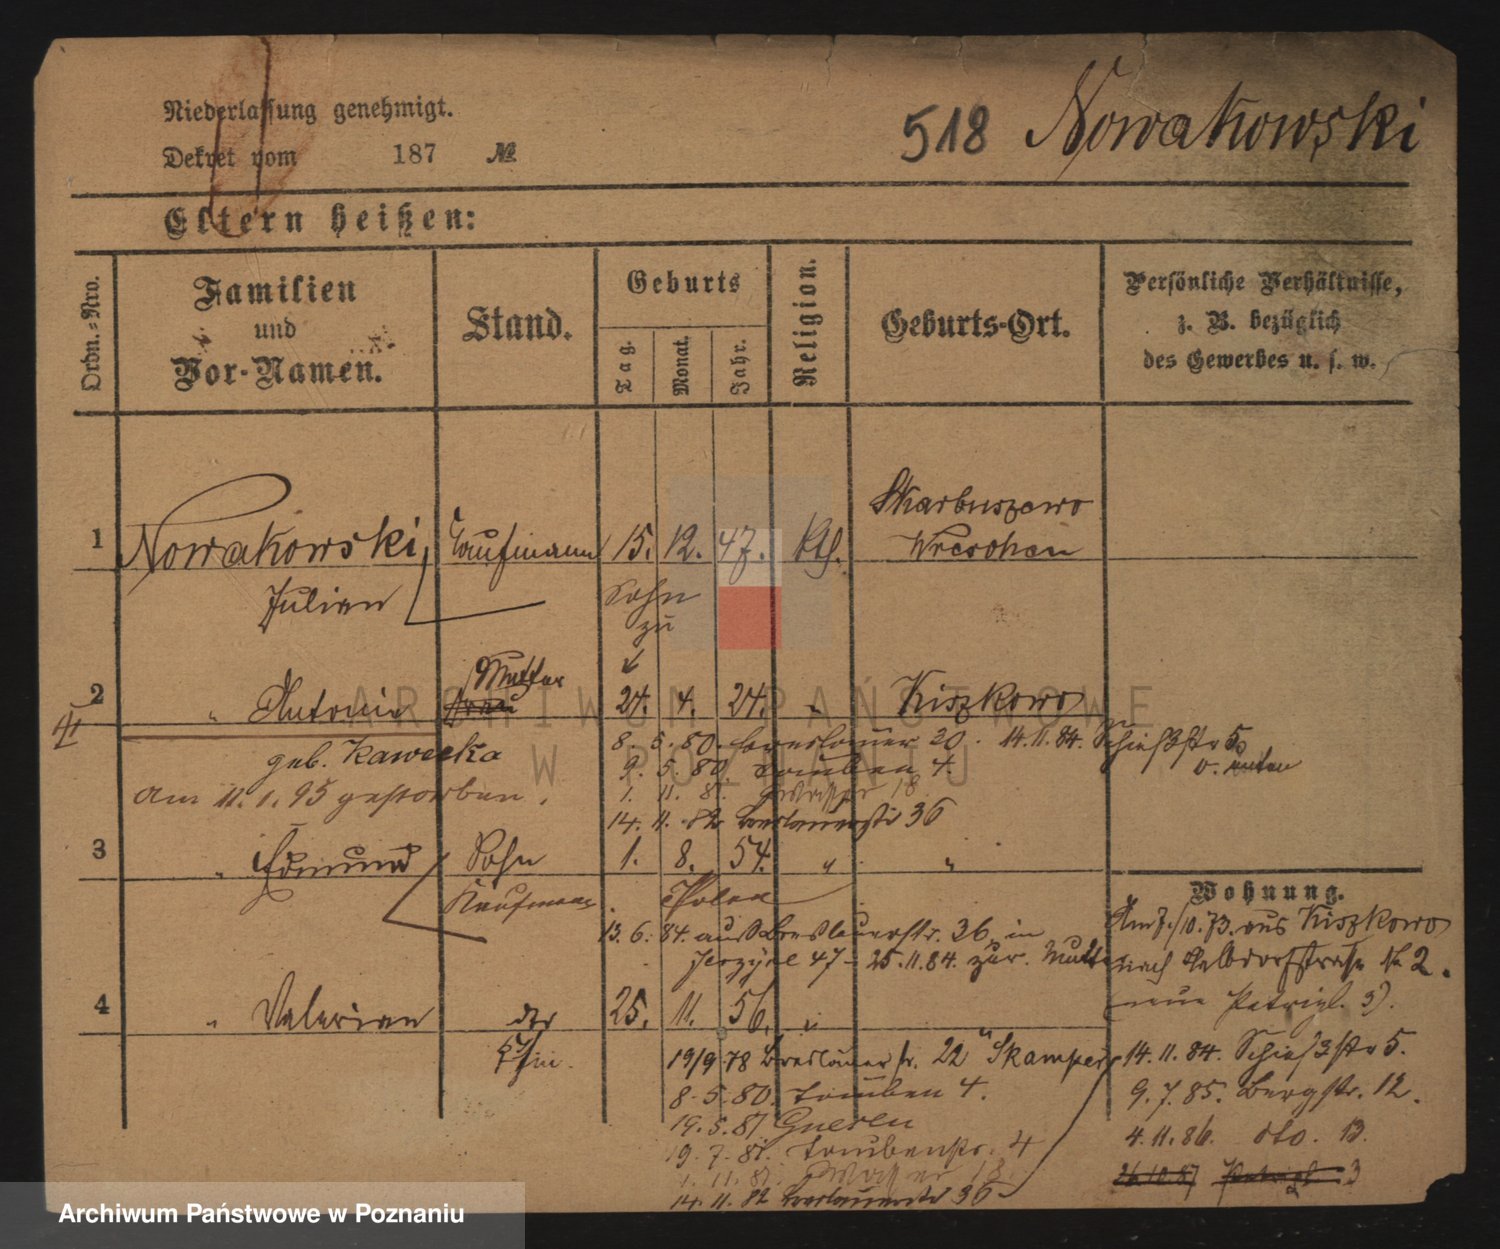 Niederlassung genehmigt.
Dekret vom 187 №
518 Nowakowski
Eltern heißen:
Ordn.-Nro.
Familien
und
Vor-Namen.
Stand.
Geburts
Tag.
Monat.
Jahr.
Religion.
Geburts-Ort.
Persönliche Verhältnisse,
z. B. bezüglich
des Gewerbes u. s. w.
Skarbuszewo
1 Nowakowski, Kaufmann 15. 12. 47. Kth. Wreschen
Julian
Sohn
zu
Mutter
2 " Antonie 24. 4. 24. " Kiszkowo
geb. Kawecka
am 11. 1. 95 gestorben.
8. 5. 80. Breslauer 20. 14. 11. 84. Schießstr 5
v. unten
9. 5. 80. Tauben 4.
1. 11. 81. Gr. 18.
14. 11. 82 Breslauerstr 36
3 " Edmund Sohn 1. 8. 54. " "
Kaufmann. Polen
13. 6. 84. aus Breslauerstr. 36 in
Jerzyce 47 - 25. 11. 84. zur Mutter
4 " Valerian der 25. 11. 56. "
19/9. 78 Breslauerstr. 22
8. 5. 80. Tauben 4.
19. 5. 81 Gnesen
19. 7. 81. Taubenstr. 4
1. 11. 81. 18.
14. 11. 82 Breslauerstr 36
Wohnung.
Am 7./10. 73. aus Kiszkowo
nach № 2.
neue Petripl. 3).
14. 11. 84. Schießstr 5.
9. 7. 85. Bergstr. 12.
4. 11. 86. dto. 13.
26.10.87 Petripl 3
ARCHIWUM PAŃSTWOWE
W POZNANIU
Archiwum Państwowe w Poznaniu